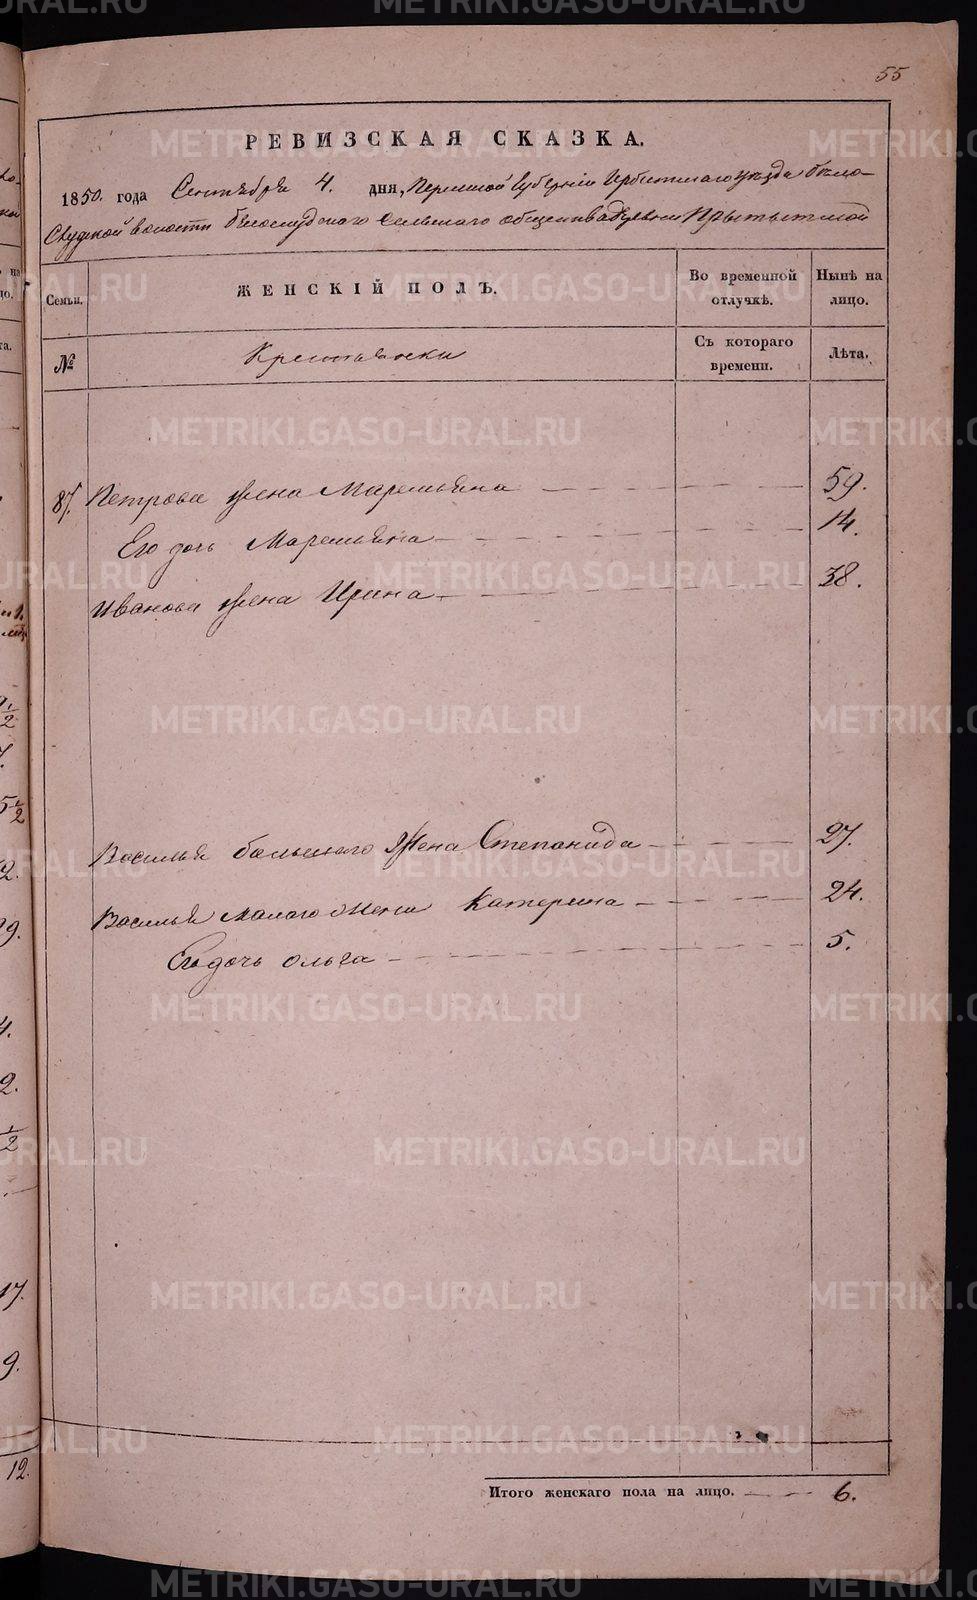 METRIKI.GASO-URAL.RU
55
РЕВИЗСКАЯ СКАЗКА.
1850. года Сентября 4. дня, Пермской Губернии Ирбитскаго уезда Бело-
Слудской волости Белослудского сельского общества Деревни
Семьи.
ЖЕНСКІЙ ПОЛЪ.
Во временной отлучкѣ.
Нынѣ на лицо.
№
Крестьянски
Съ котораго времени.
Лѣта.
87. Петрова жена Маремьяна 59.
Его дочь Маремьяна 14.
Иванова жена Ирина 38.
Василья большаго Жена Степанида 27.
Василья малаго жена Катерина 24.
Его дочь Ольга 5.
Итого женскаго пола на лицо. 6.
12.